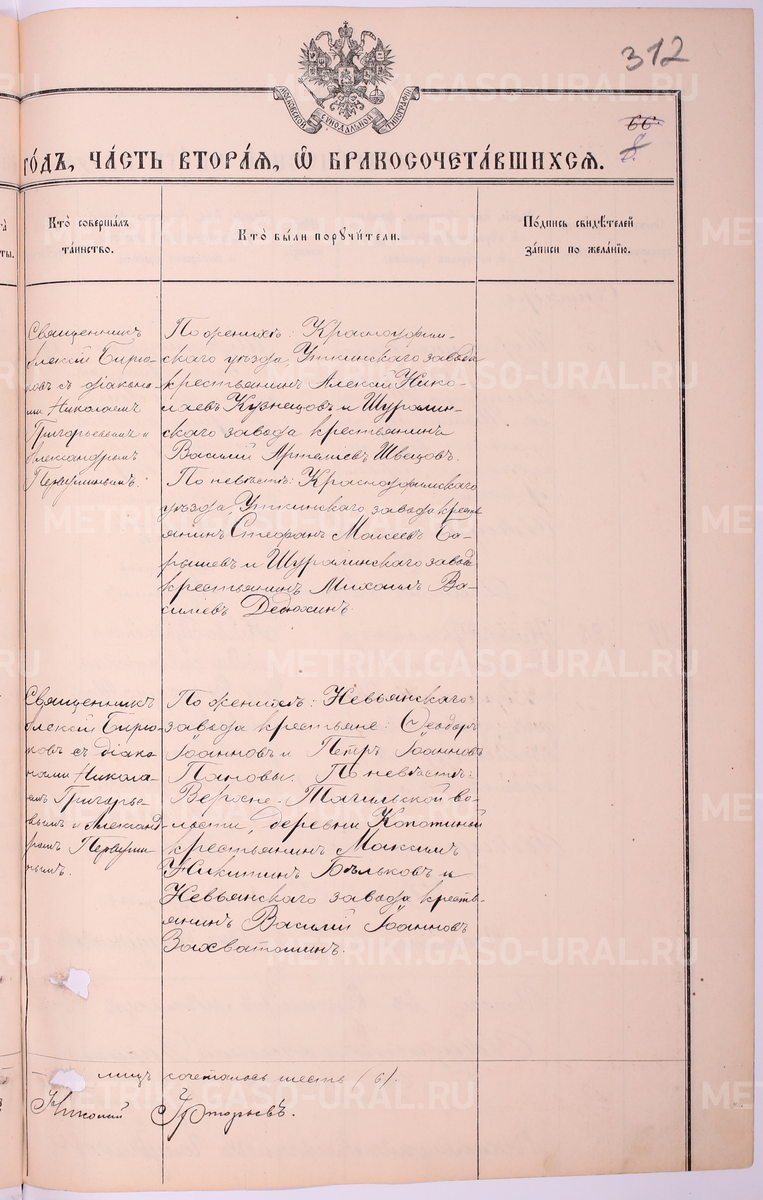 312
66
МОСКОВСКОЙ СѴНОДАЛЬНОЙ ТИПОГРАФІИ
го́дъ, ча́сть втора́я, ѿ бракосочета́вшихся.
Кто̀ совершалъ
та́инство.
Кто̀ бы́ли поручи́тели.
По́дпись свидѣ́телей
за́писи по жела́нїю.
Священникъ
Алексій Бирю-
ковъ съ діакона-
ми Николаемъ
Григорьевымъ и
Александромъ
Первушинымъ.
По женихѣ: Красноуфим-
скаго уѣзда, Уткинскаго завода
крестьянинъ Алексій Нико-
лаевъ Кузнецовъ и Шуралин-
скаго завода крестьянинъ
Василій Артемьевъ Швецовъ.
По невѣстѣ: Красноуфимскаго
уѣзда, Уткинскаго завода кресть-
янинъ Стефанъ Моисеевъ Ба-
рышевъ и Шуралинскаго завода
крестьянинъ Михаилъ Ва-
сильевъ Дедюхинъ.
Священникъ
Алексій Бирю-
ковъ съ діако-
нами Никола-
емъ Григорье-
вымъ и Александ-
ромъ Первуши-
нымъ.
По женихѣ: Невьянскаго
завода крестьяне: Ѳеодоръ
Іоанновъ и Петръ Іоанновъ
Пановы. По невѣстѣ:
Верхне-Тагильской во-
лости, деревни
крестьянинъ Максимъ
Никитинъ Бѣльковъ и
Невьянскаго завода кресть-
янинъ Василій Іоанновъ
Захваташинъ.
лицъ сочеталось шесть (6).
Николай Григорьевъ.
METRIKI.GASO-URAL.RU